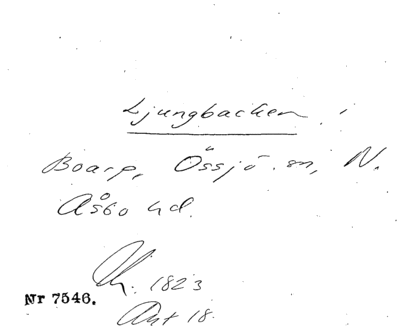 Ljungbacken
Boarp, Össjö sn, N.
Åsbo hd.
1823
Nr 7546.
Akt 18.